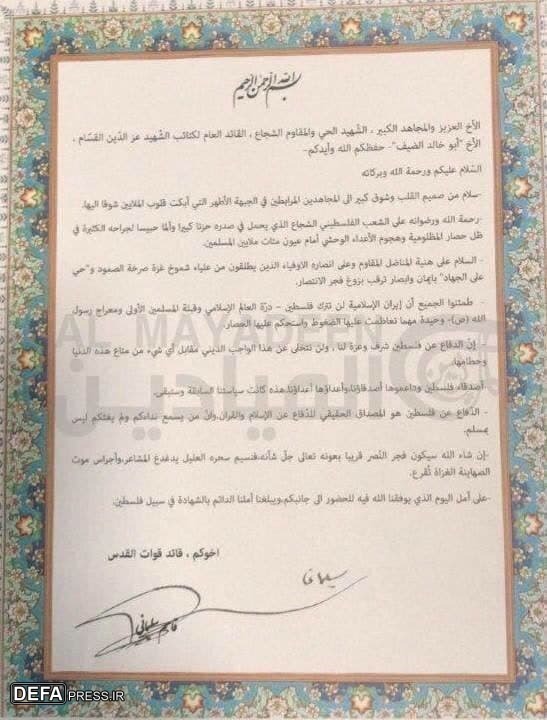 بسم الله الرحمن الرحيم
الأخ العزيز والمجاهد الكبير ، الشّهيد الحي والمقاوم الشجاع ، القائد العام لكتائب الشّهيد عز الدّين القسّام ،
الأخ "أبو خالد الضيف"- حفظكم الله وأيدكم-
السّلام عليكم ورحمة الله وبركاته
-سلام من صميم القلب وشوق كبير الى المجاهدين المرابطين في الجبهة الأطهر التي أبكت قلوب الملايين شوقا اليها.
-رحمة الله ورضوانه على الشعب الفلسطيني الشجاع الذي يحمل في صدره حزنا كبيرا وألما حبيسا لجراحه الكثيرة في
ظل حصار المظلومية وهجوم الأعداء الوحشي أمام عيون مئات ملايين المسلمين.
- السلام على هنية المناضل المقاوم وعلى انصاره الاوفياء الذين يطلقون من علياء شموخ غزة صرخة الصمود و"حي
على الجهاد" بإيمان وابصار ترقب بزوغ فجر الانتصار.
- طمئنوا الجميع أن إيران الإسلامية لن تترك فلسطين – درّة العالم الإسلامي وقبلة المسلمين الأولى ومعراج رسول
الله (ص)- وحيدة مهما تعاظمت عليها الضغوط واستحكم عليها الحصار.
- إنّ الدفاع عن فلسطين شرف وعزة لنا ، ولن نتخلى عن هذا الواجب الديني مقابل أي شيء من متاع هذه الدنيا
وحطامها.
-أصدقاء فلسطين وداعموها أصدقاؤنا،وأعداؤها أعداؤنا،هذه كانت سياستنا السابقة وستبقى.
- الدّفاع عن فلسطين هو المصداق الحقيقي للدّفاع عن الإسلام والقران،وانّ من يسمع نداءكم ولم يغثكم ليس
بمسلم.
-إن شاء الله سيكون فجر النّصر قريبا بعونه تعالى جلّ شأنه،فنسيم سحره العليل يدغدغ المشاعر،وأجراس موت
الصهاينة الغزاة تُقرع.
-على أمل اليوم الذي يوفقنا الله فيه للحضور الى جانبكم،ويبلغنا أملنا الدائم بالشهادة في سبيل فلسطين.
اخوكم ، قائد قوات القدس
قاسم سليماني
AL MAYADEEN
الميادين
DEFA PRESS.IR